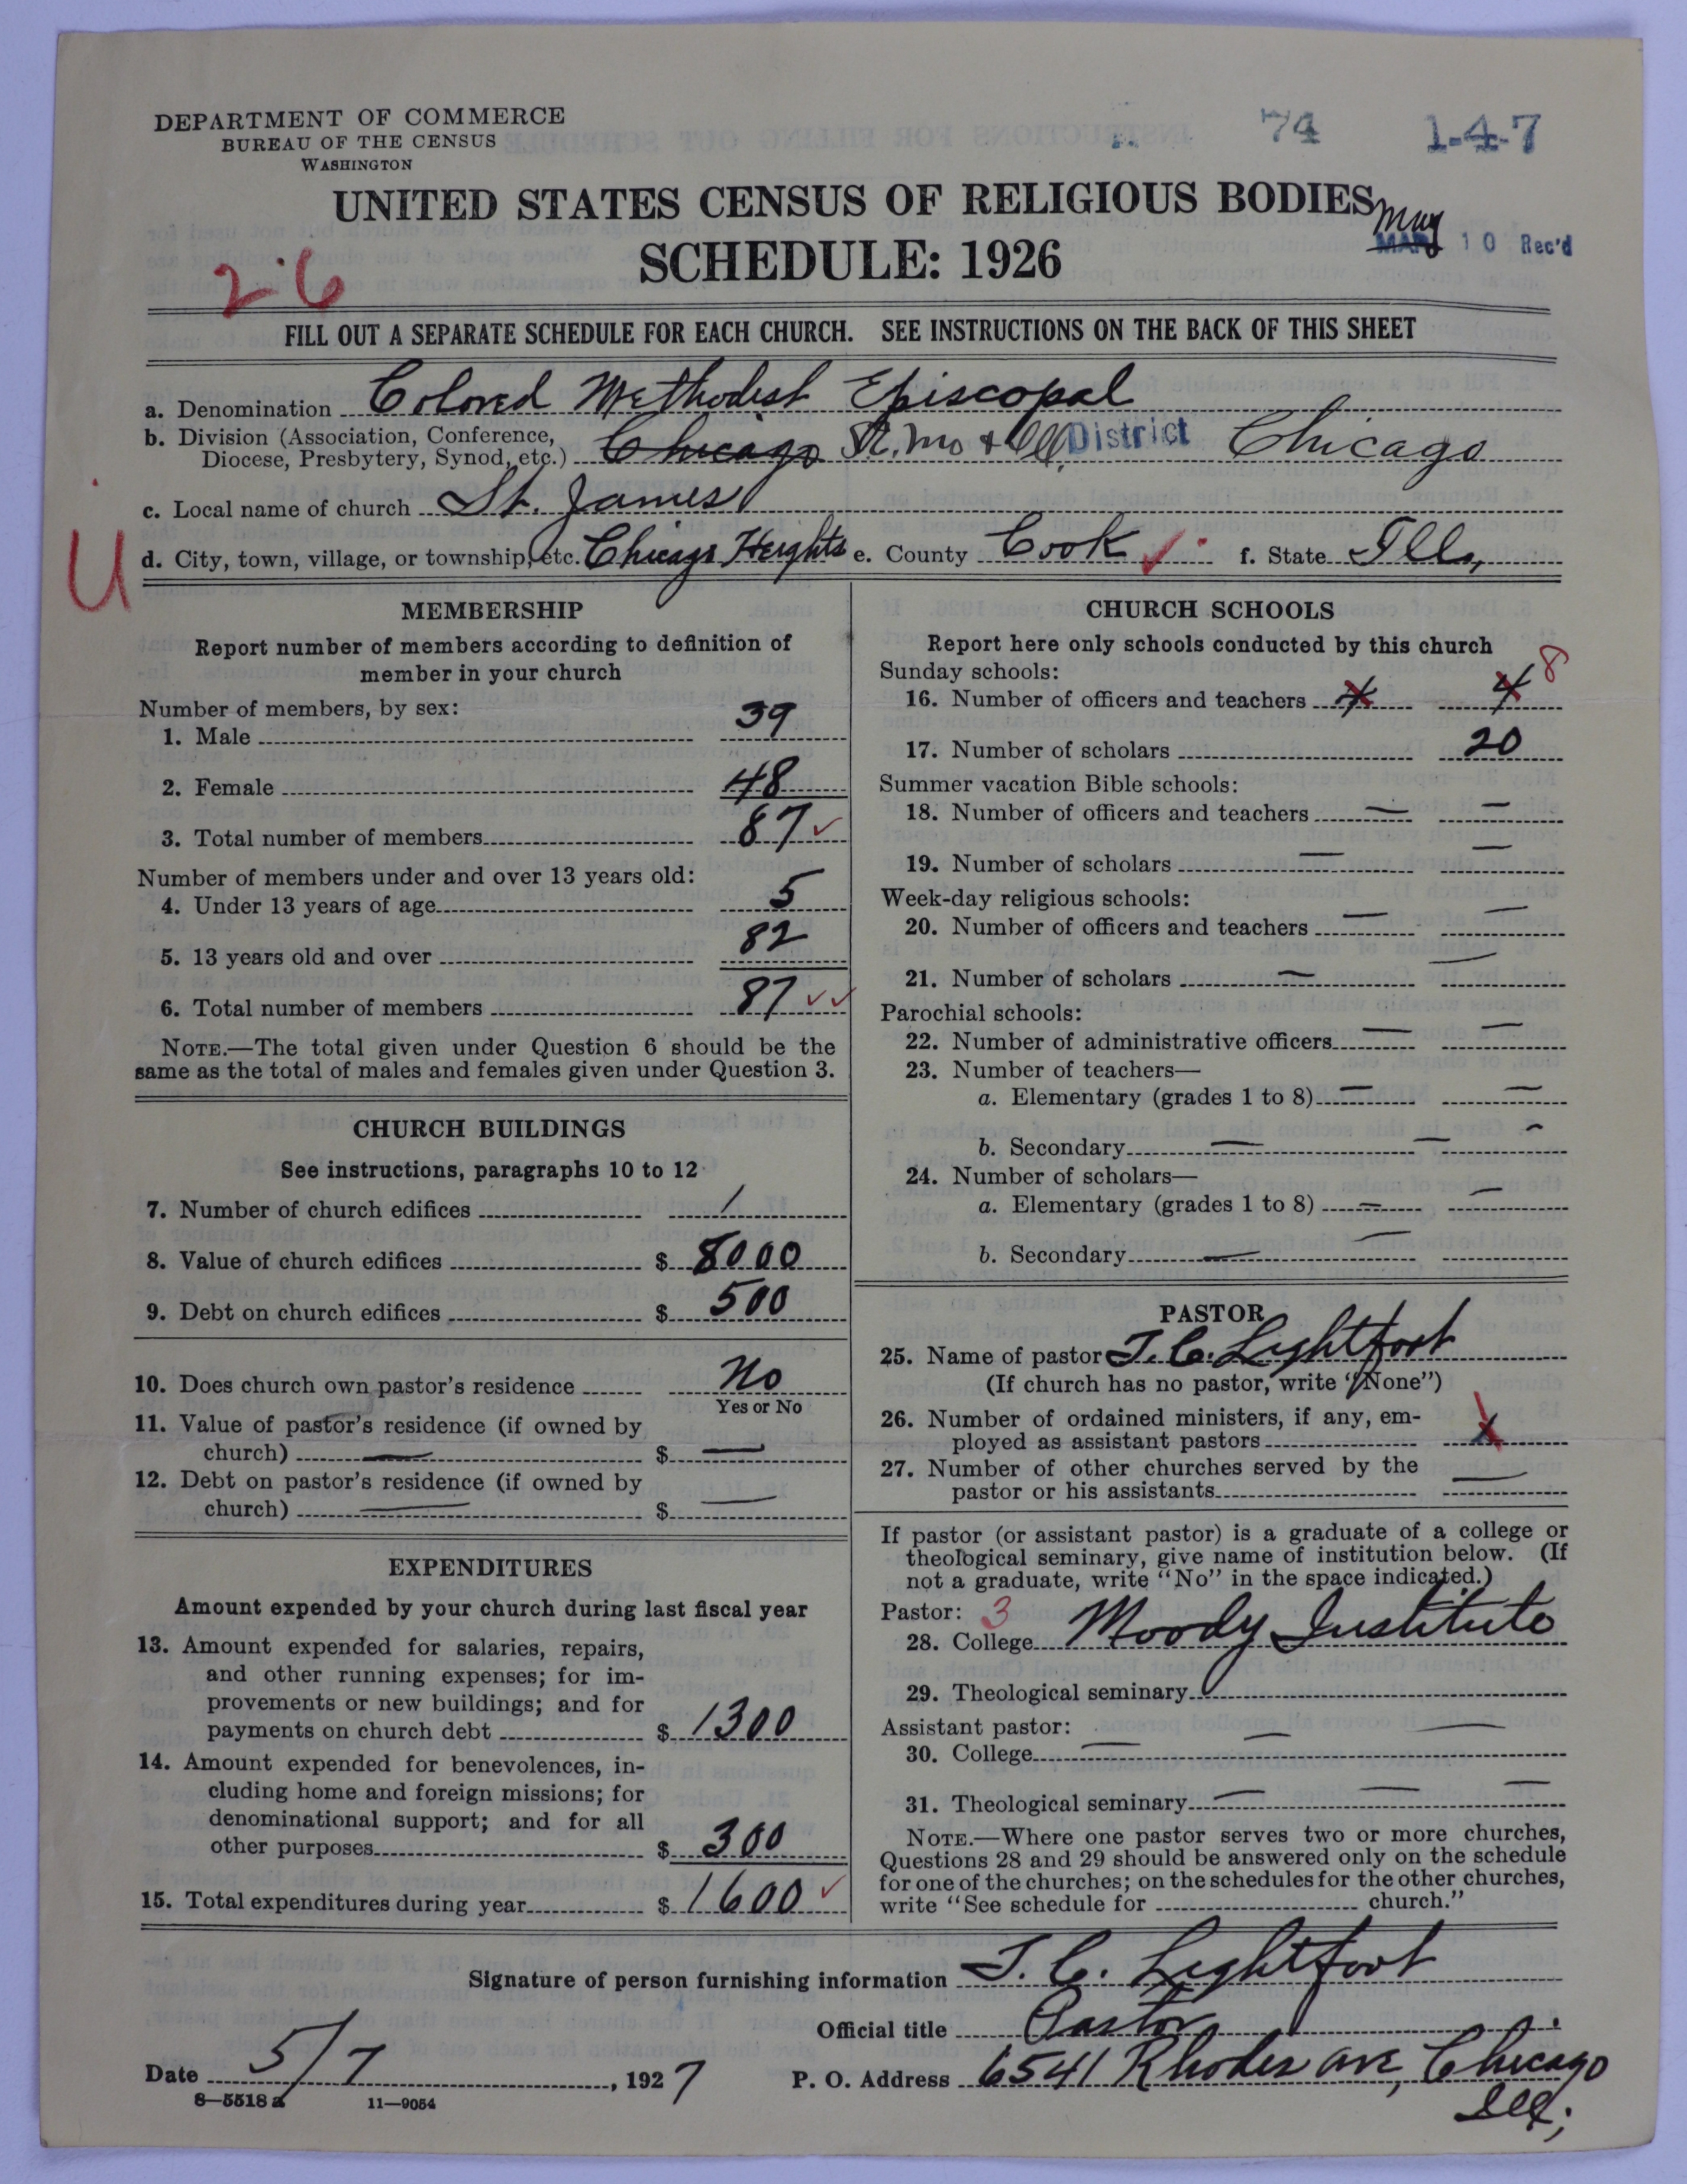 DEPARTMENT OF COMMERCE
BUREAU OF THE CENSUS
WASHINGTON
74
1-4-7
UNITED STATES CENSUS OF RELIGIOUS BODIES
SCHEDULE: 1926
May
MAR 10 Rec'd
26
FILL OUT A SEPARATE SCHEDULE FOR EACH CHURCH. SEE INSTRUCTIONS ON THE BACK OF THIS SHEET
a. Denomination Colored Methodist Episcopal
b. Division (Association, Conference,
Diocese, Presbytery, Synod, etc.) Chicago Mo & Ill. District Chicago
c. Local name of church St. James
U
d. City, town, village, or township, etc. Chicago Heights e. County Cook f. State Ill,
MEMBERSHIP
Report number of members according to definition of
member in your church
Number of members, by sex:
1. Male 39
2. Female 48
3. Total number of members 87
Number of members under and over 13 years old:
4. Under 13 years of age 5
5. 13 years old and over 82
6. Total number of members 87
NOTE.—The total given under Question 6 should be the
same as the total of males and females given under Question 3.
CHURCH BUILDINGS
See instructions, paragraphs 10 to 12
7. Number of church edifices 1
8. Value of church edifices $ 8000
9. Debt on church edifices $ 500
10. Does church own pastor's residence No
Yes or No
11. Value of pastor's residence (if owned by
church) — $ —
12. Debt on pastor's residence (if owned by
church) — $ —
EXPENDITURES
Amount expended by your church during last fiscal year
13. Amount expended for salaries, repairs,
and other running expenses; for im-
provements or new buildings; and for
payments on church debt $ 1300
14. Amount expended for benevolences, in-
cluding home and foreign missions; for
denominational support; and for all
other purposes $ 300
15. Total expenditures during year $ 1600
CHURCH SCHOOLS
Report here only schools conducted by this church
Sunday schools:
16. Number of officers and teachers 4 4 8
17. Number of scholars 20
Summer vacation Bible schools:
18. Number of officers and teachers — —
19. Number of scholars — —
Week-day religious schools:
20. Number of officers and teachers — —
21. Number of scholars — —
Parochial schools:
22. Number of administrative officers — —
23. Number of teachers—
a. Elementary (grades 1 to 8) — —
b. Secondary — — —
24. Number of scholars—
a. Elementary (grades 1 to 8) — —
b. Secondary — —
PASTOR
25. Name of pastor J. C. Lightfoot
(If church has no pastor, write "None")
26. Number of ordained ministers, if any, em-
ployed as assistant pastors
27. Number of other churches served by the
pastor or his assistants —
If pastor (or assistant pastor) is a graduate of a college or
theological seminary, give name of institution below. (If
not a graduate, write "No" in the space indicated.)
Pastor: 3
28. College Moody Institute
29. Theological seminary
Assistant pastor:
30. College — — —
31. Theological seminary — — —
NOTE.—Where one pastor serves two or more churches,
Questions 28 and 29 should be answered only on the schedule
for one of the churches; on the schedules for the other churches,
write "See schedule for church."
Signature of person furnishing information J. C. Lightfoot
Official title Pastor
Date 5/7, 1927 P. O. Address 6541 Rhodes ave, Chicago
Ill;
8—5518 a 11—9054